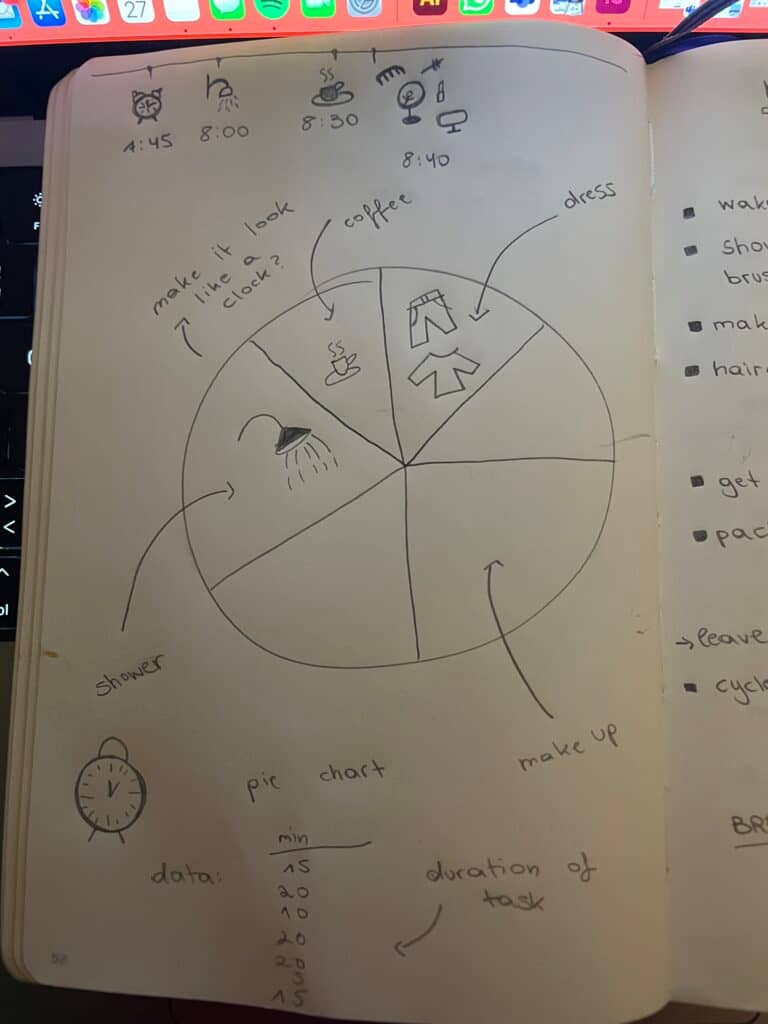 27
Ai
1:45
8:00
8:30
8:40
make it look
like a
clock?
coffee
dress
shower
make up
pie chart
data:
min
15
20
10
20
20
5
15
duration of
task
wake
show
brus
mak
hair
get
pac
→leave
cycl
BR